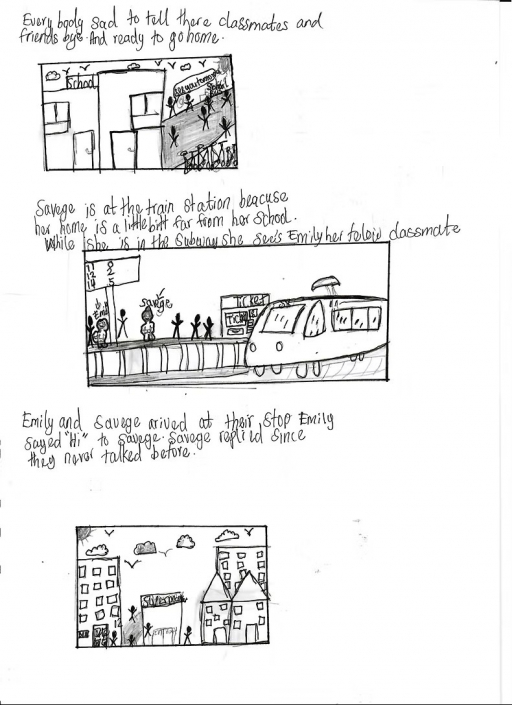 Every body sad to tell there classmates and
friends bye. And ready to go home.
School
Savege is at the train station beacuse
her home is a little bitt far from her School.
While she is in the Subway she see's Emily her classmate
Savege
Ticket
Emily and Savege arived at their stop Emily
sayed "Hi" to Savege. Savege replied since
they never talked before.